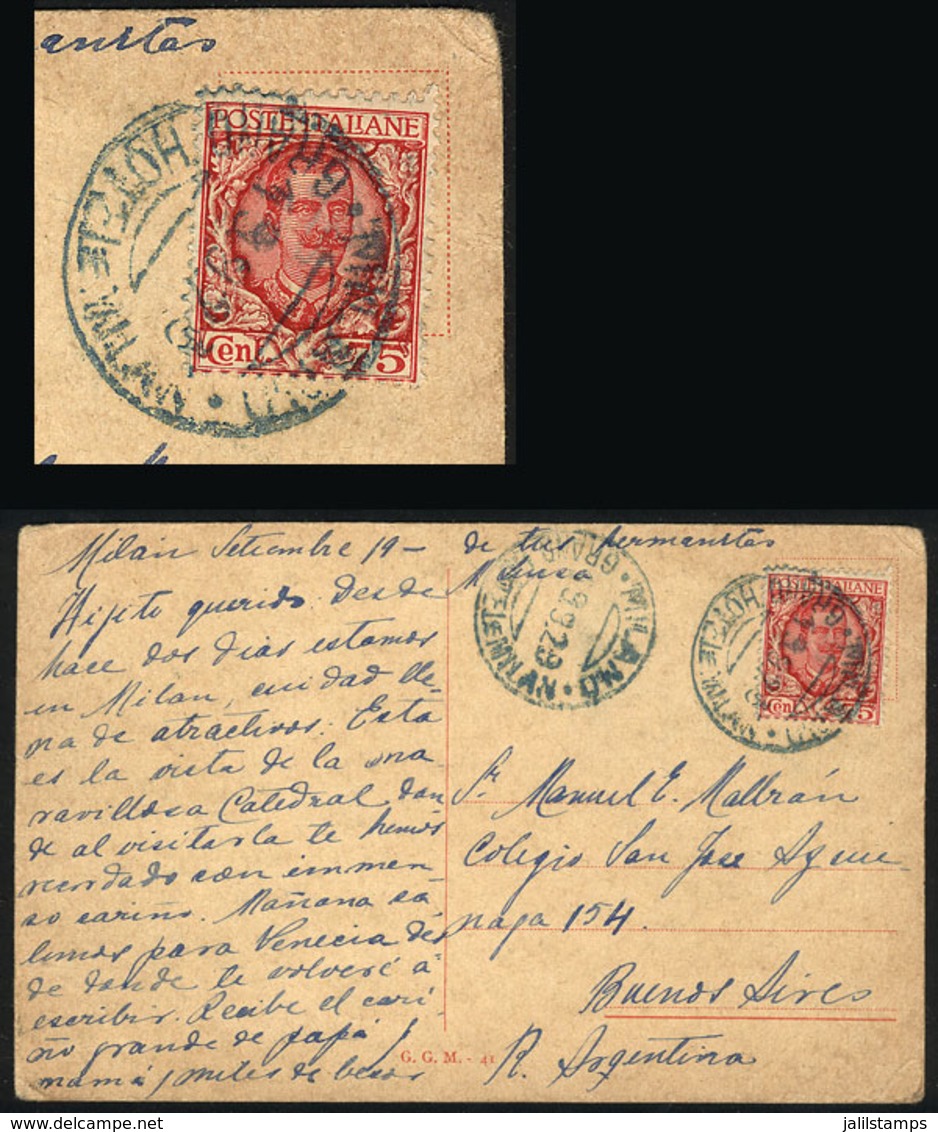 anitas
POSTE ITALIANE
Cent. 75
Milán Setiembre 19 -
Hijito querido. Desde
hace dos dias estamos
en Milan, cuidad lle-
na de atractivos. Esta
es la vista de la ma
ravillosa Catedral don
de al visitarla te hemos
recordado con inmen-
so cariño. Mañana sa
limos para Venecia des
de donde te volveré a-
escribir. Recibe el cari
ño grande de papá y
mamá y miles de besos
de tus hermanitas
MILANO
19 9 29
POSTE ITALIANE
Cent. 75
Sr. Manuel E. Mallrán
Colegio San Jose Azcue
naga 154.
Buenos Aires
R. Argentina
G. G. M. - 41
jalilstamps